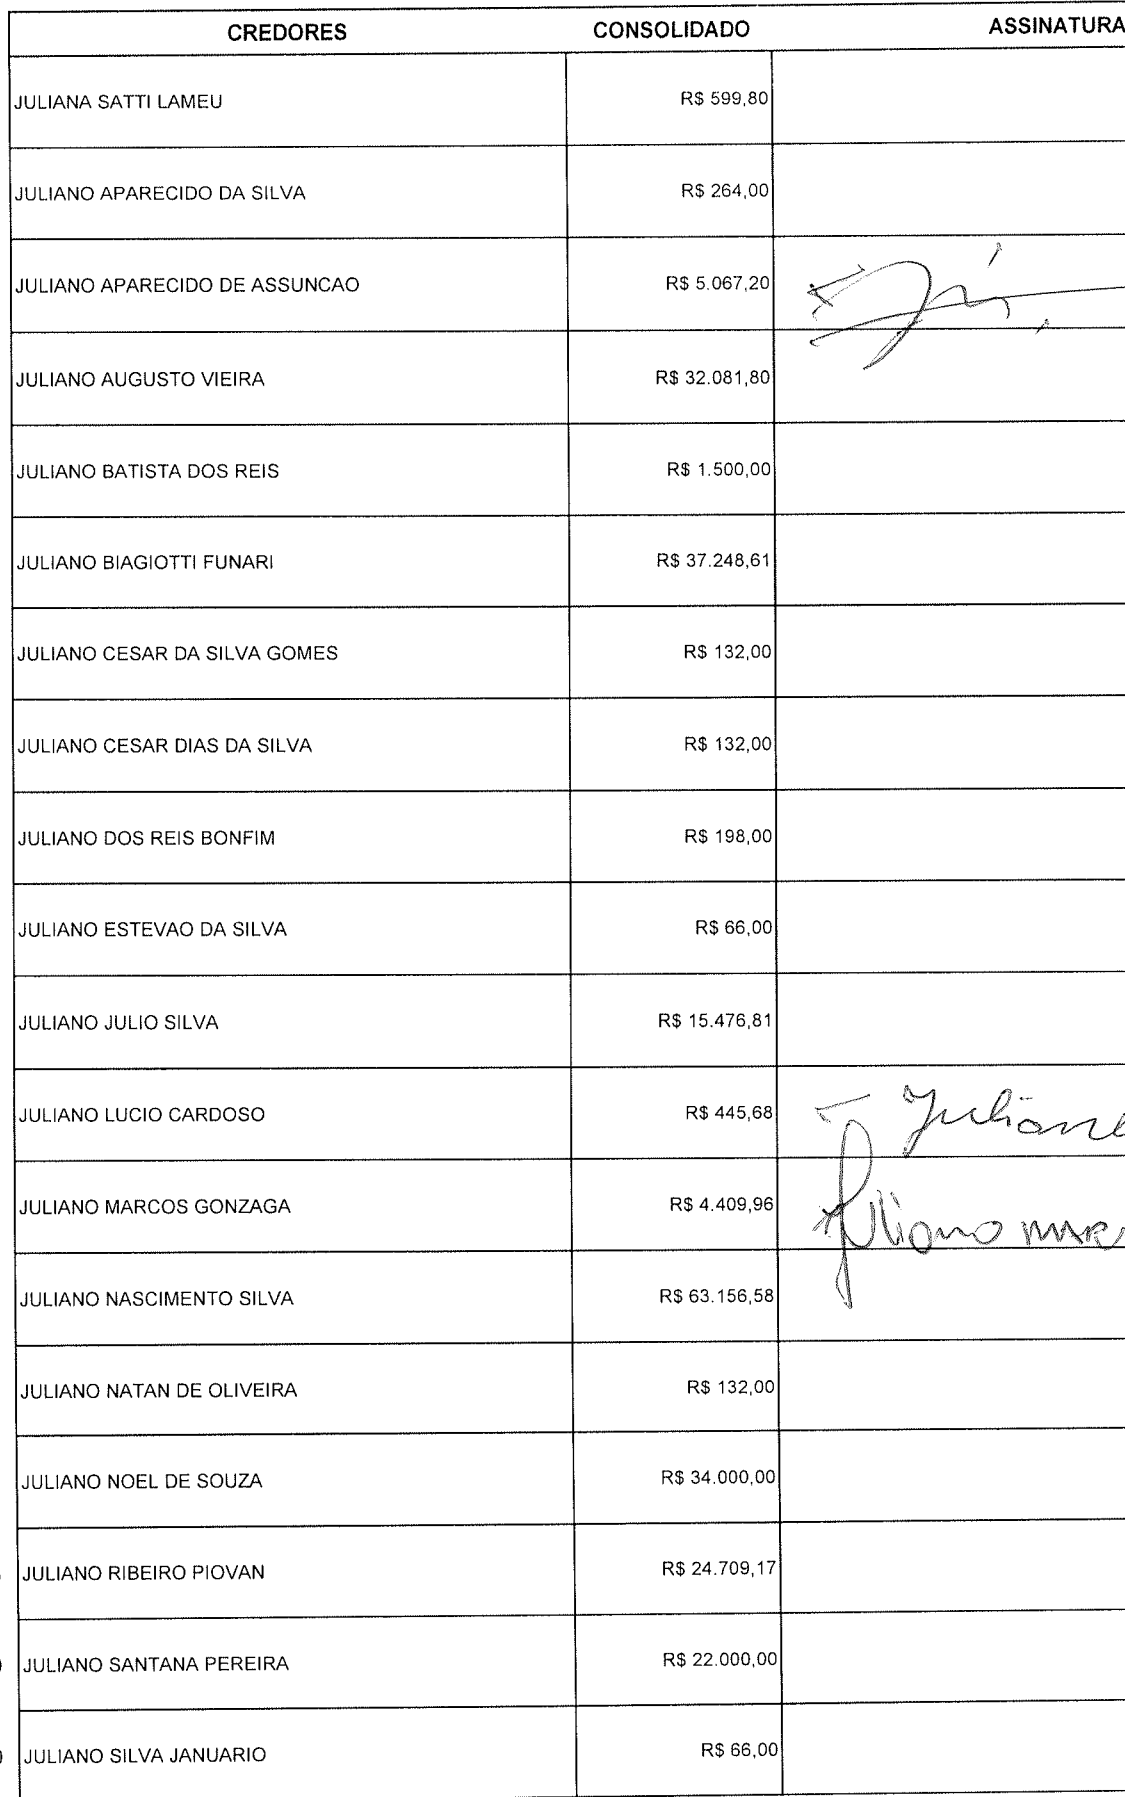 CREDORES CONSOLIDADO ASSINATURA
JULIANA SATTI LAMEU R$ 599,80
JULIANO APARECIDO DA SILVA R$ 264,00
JULIANO APARECIDO DE ASSUNCAO R$ 5.067,20
JULIANO AUGUSTO VIEIRA R$ 32.081,80
JULIANO BATISTA DOS REIS R$ 1.500,00
JULIANO BIAGIOTTI FUNARI R$ 37.248,61
JULIANO CESAR DA SILVA GOMES R$ 132,00
JULIANO CESAR DIAS DA SILVA R$ 132,00
JULIANO DOS REIS BONFIM R$ 198,00
JULIANO ESTEVAO DA SILVA R$ 66,00
JULIANO JULIO SILVA R$ 15.476,81
JULIANO LUCIO CARDOSO R$ 445,68 Juliano
JULIANO MARCOS GONZAGA R$ 4.409,96 Juliano MAR
JULIANO NASCIMENTO SILVA R$ 63.156,58
JULIANO NATAN DE OLIVEIRA R$ 132,00
JULIANO NOEL DE SOUZA R$ 34.000,00
JULIANO RIBEIRO PIOVAN R$ 24.709,17
JULIANO SANTANA PEREIRA R$ 22.000,00
JULIANO SILVA JANUARIO R$ 66,00